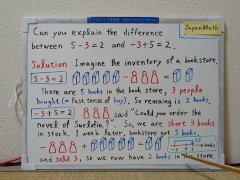 JapanMath
Can you explain the difference
between 5-3=2 and -3+5=2.
Solution Imagine the inventory of a bookstore.
5-3=2
There are 5 books in the book store, 3 people
bought (= Past tense of buy). So remaing is 2 books.
-3+5=2 said "Could you order the
novel of Suelofia?". So, we are short 3 books
in stock. 1 week later, bookstore got 5 books,
and sold 3, so we now have 2 books in the store.